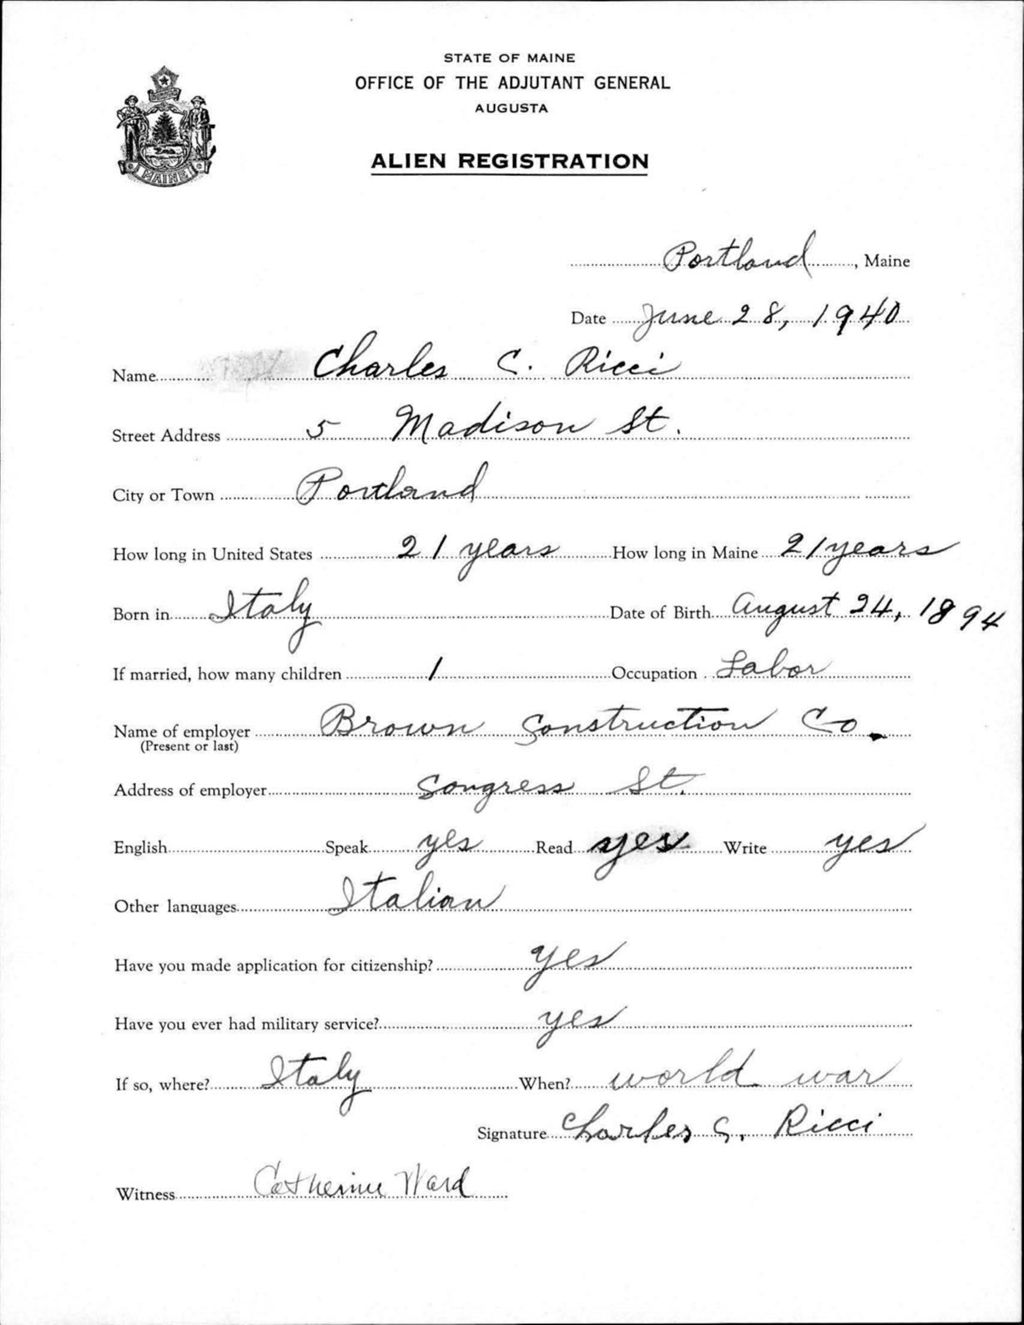 STATE OF MAINE
OFFICE OF THE ADJUTANT GENERAL
AUGUSTA
ALIEN REGISTRATION
MAINE
Portland, Maine
Date June 28, 1940
Name Charles C. Ricci
Street Address 5 Madison St.
City or Town Portland
How long in United States 21 years How long in Maine 21 years
Born in Italy Date of Birth August 24, 1894
If married, how many children 1 Occupation Labor
Name of employer Brown Construction Co.
(Present or last)
Address of employer Congress St.
English Speak yes Read yes Write yes
Other languages Italian
Have you made application for citizenship? Yes
Have you ever had military service? yes
If so, where? Italy When? world war
Signature Charles C. Ricci
Witness Catherine Ward